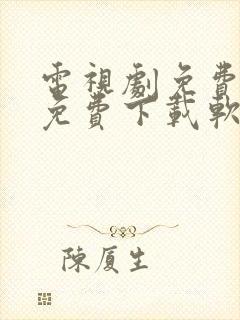 電視劇免費
免費下載軟
陳厦生